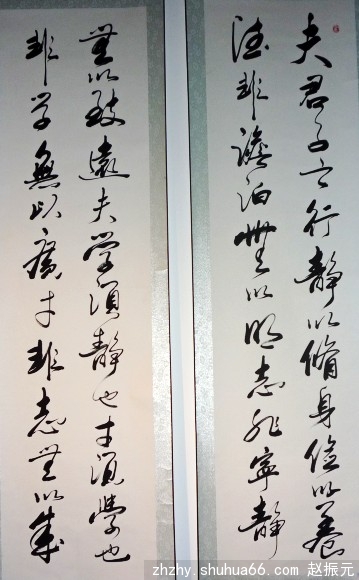 夫君子之行静以脩身俭以养
德非澹泊无以明志非宁静
无以致远夫学须静也才须学也
非学无以广才非志无以成
zhzhy.shuhua66.com 赵振元